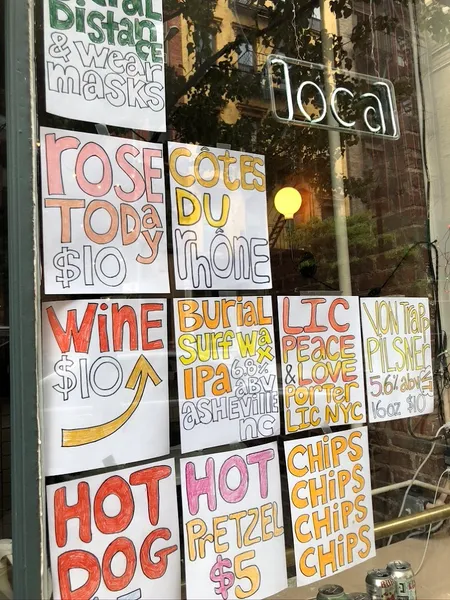 Distance
& wear
masks
local
rose
TODay
$10
CÔTES
DU
rhÔNE
WINE
$10
BURIAL
SURF WAX
IPA 6.8%
ABV
asHEVILLE
NC
LIC
PEACE
& LOVE
PORTER
LIC NYC
VON TraPP
PILSNEr
5.6% abv
16 oz $10
HOT
DOG
HOT
PrETZEL
$5
CHIPS
CHIPS
CHIPS
CHIPS